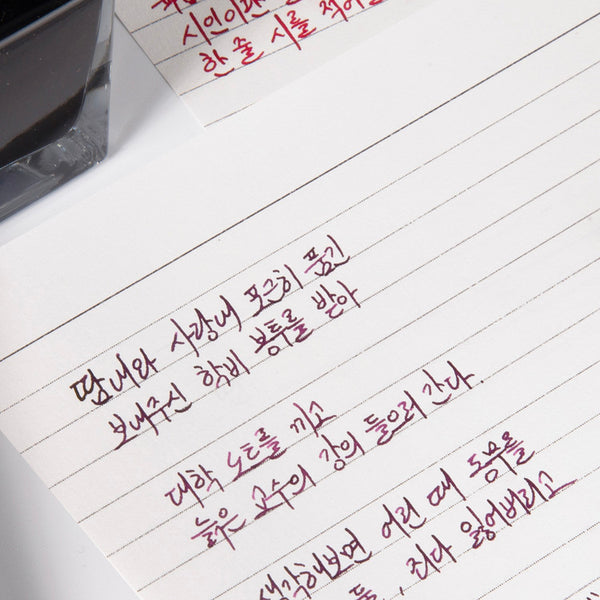 시인이란
한 줄 시를 적어
땀내와 사랑내 포근히 품긴
보내주신 학비 봉투를 받아
대학 노트를 끼고
늙은 교수의 강의 들으러 간다.
생각해보면 어린 때 동무를
들, 죄다 잃어버리고